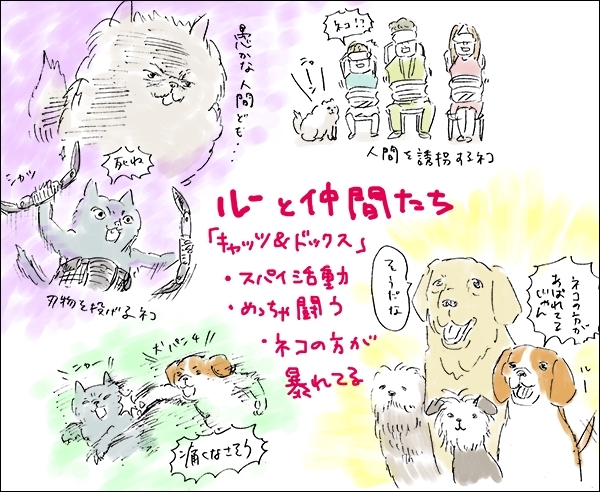 愚かな人間ども…
ネコ!?
ニャーン
人間を誘拐するネコ
死ね
シャッ
刃物を投げるネコ
ルーと仲間たち
「キャッツ&ドックス」
・スパイ活動
・めっちゃ闘う
・ネコの方が
暴れてる
そうだな
ネコの方が
あばれてる
じゃん
ルー
ズパン4!
ニャー
痛くなさそう